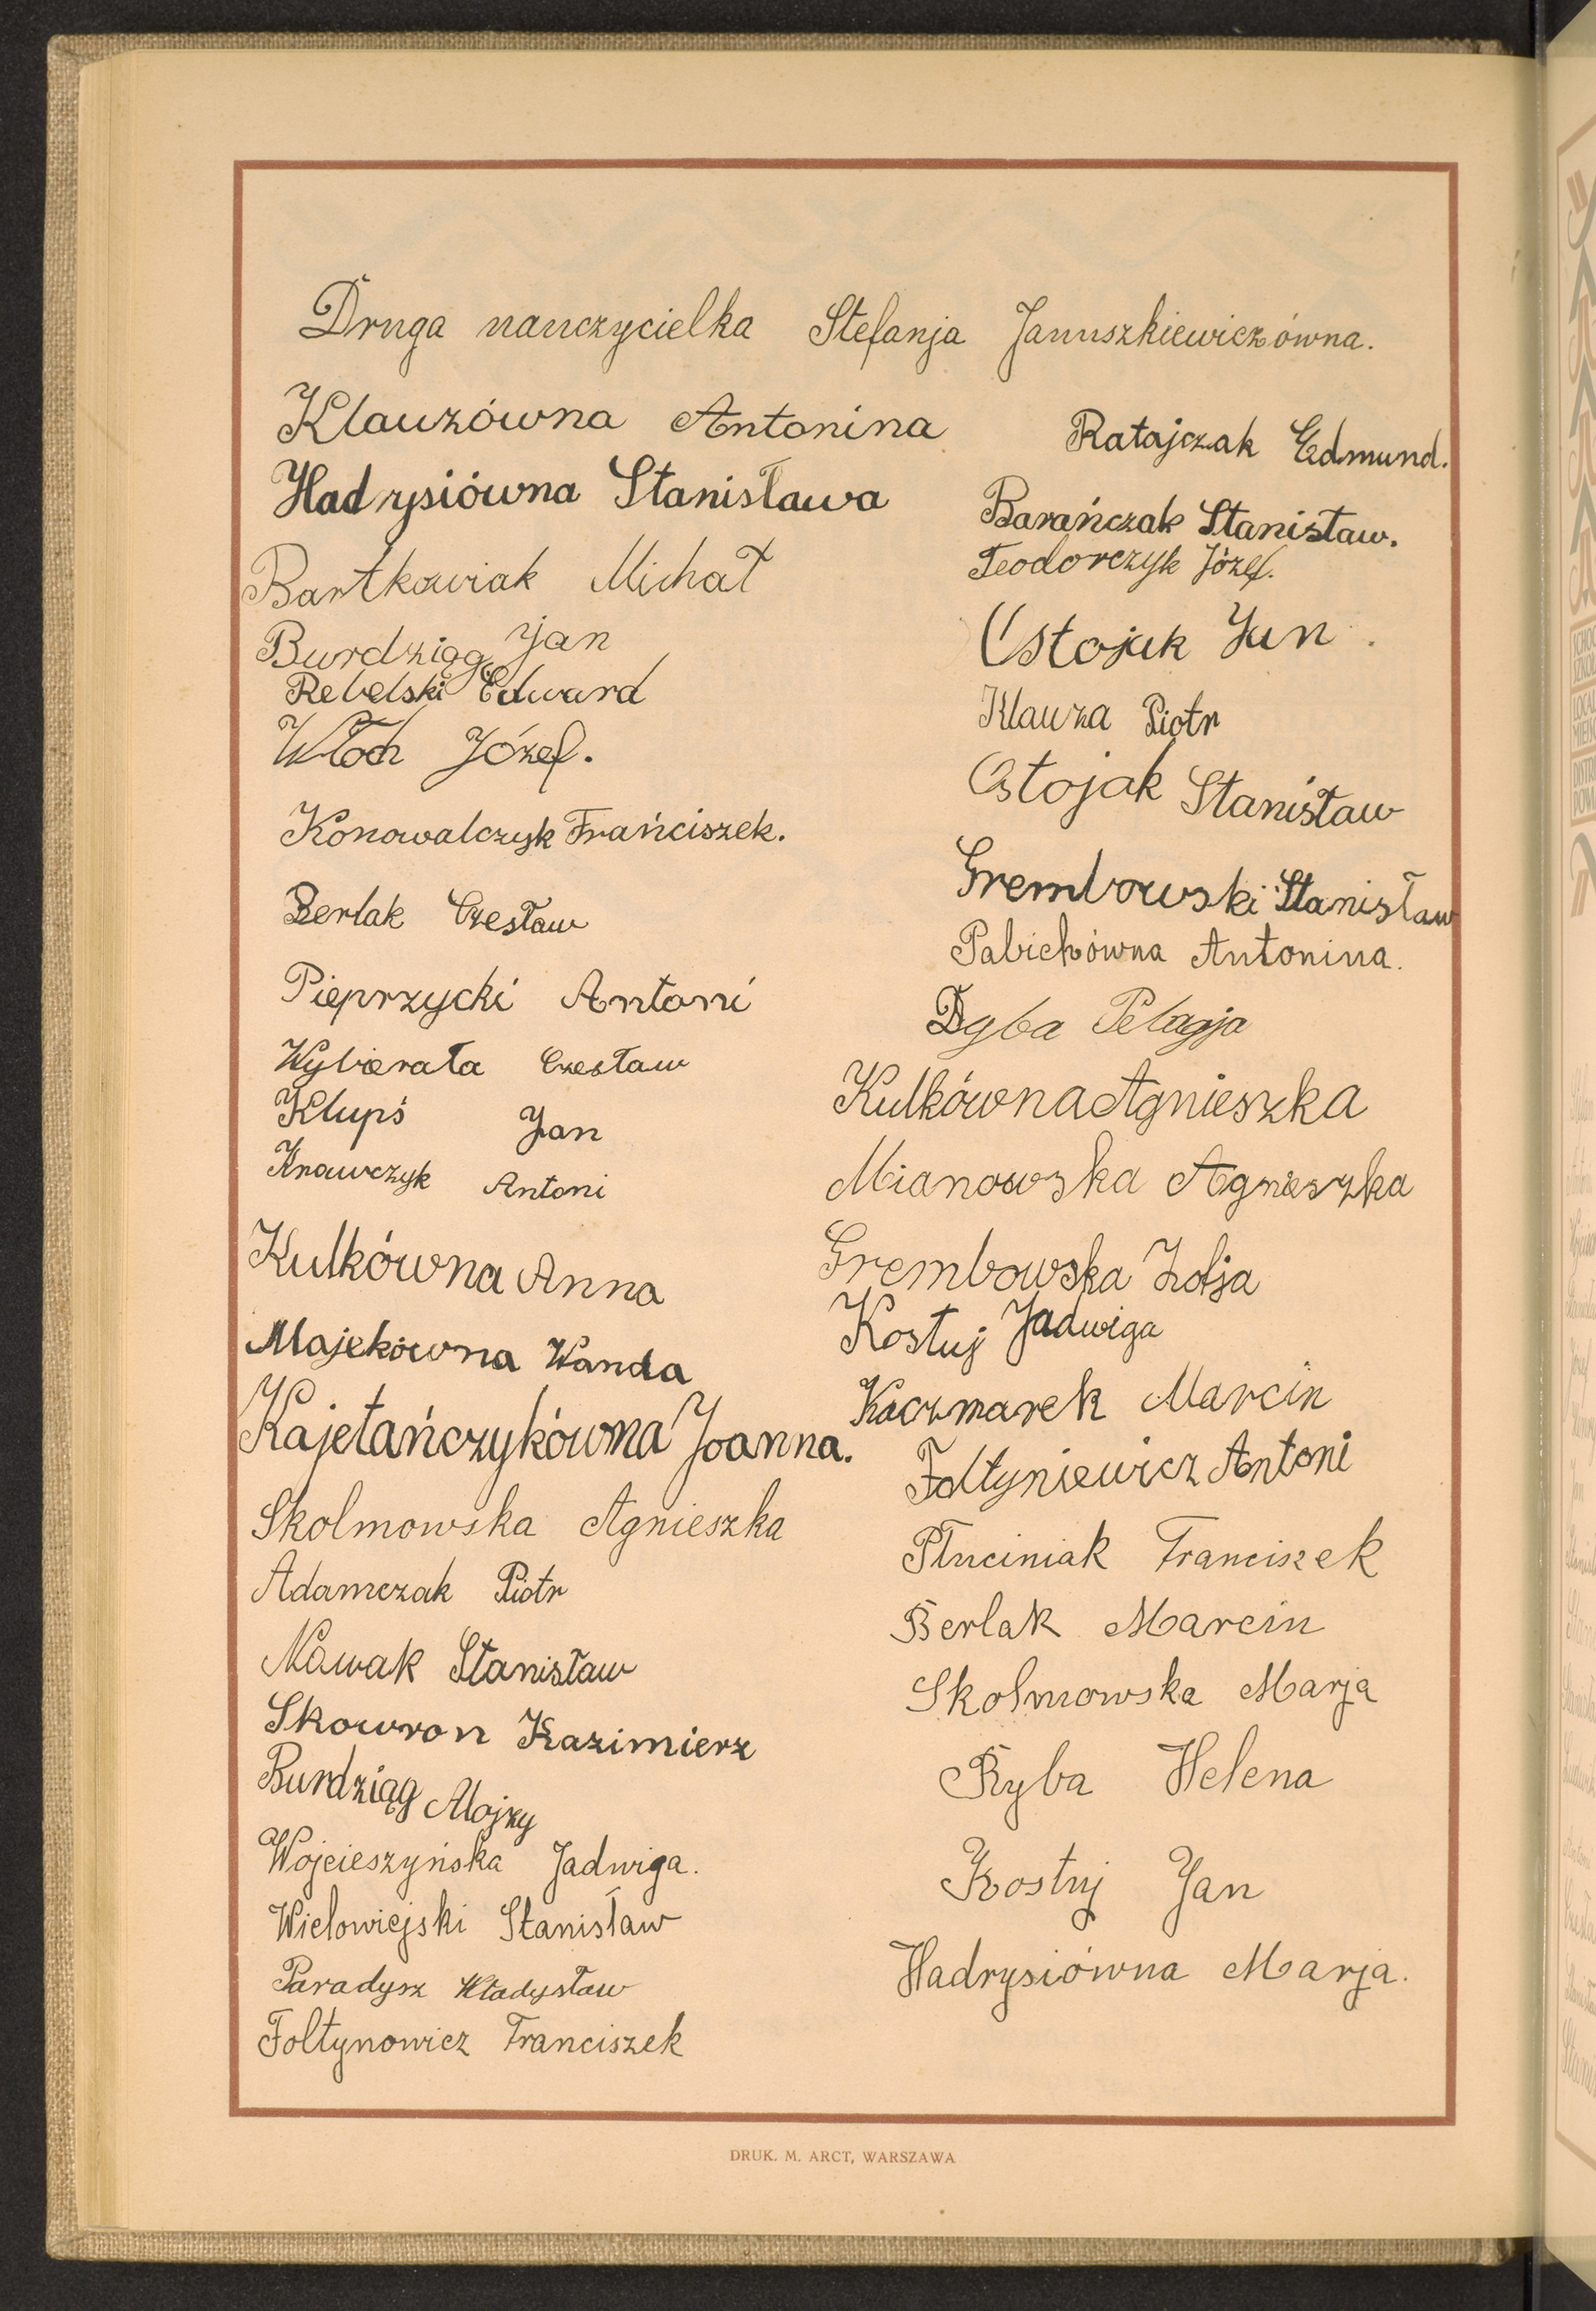 Druga nauczycielka Stefanja Januszkiewiczówna.
Klauzówna Antonina
Hadrysiówna Stanisława
Bartkowiak Michał
Burdziąg Jan
Rebelski Edward
Włoch Józef.
Konowalczyk Frańciszek.
Berlak Czesław
Pieprzycki Antoni
Wybierała Czesław
Klupś Jan
Krawczyk Antoni
Kulkówna Anna
Majekówna Wanda
Kajetańczykówna Joanna.
Skolmowska Agnieszka
Adamczak Piotr
Nowak Stanisław
Skowron Kazimierz
Burdziąg Alojzy
Wojcieszyńska Jadwiga.
Wielowiejski Stanisław
Paradysz Władysław
Fołtynowicz Franciszek
Ratajczak Edmund.
Barańczak Stanisław.
Teodorczyk Józef.
Ostojak Jan
Klauza Piotr
Ostojak Stanisław
Grembowski Stanisław
Pabichówna Antonina.
Dyba Pelagja
Kulkówna Agnieszka
Mianowska Agnieszka
Grembowska Zofja
Kostuj Jadwiga
Kaczmarek Marcin
Fołtyniewicz Antoni
Płuciniak Franciszek
Berlak Marcin
Skolmowska Marja
Ryba Helena
Kostuj Jan
Hadrysiówna Marja.
DRUK. M. ARCT, WARSZAWA